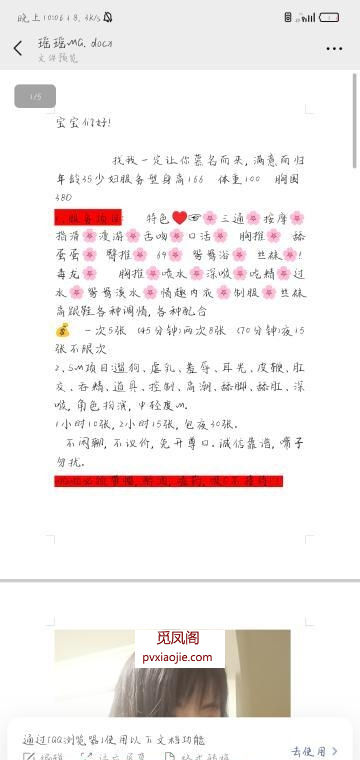 晚上10:06 18.3K/s
瑶瑶MG.docx
文件预览
1/5
宝宝们好!
找我一定让你慕名而来,满意而归
年龄35少妇服务型身高166 体重100 胸围
380
特色❤️👉🌸三通🌸按摩🌸
指滑🌸漫游🌸舌吻🌸口活🌸 胸推🌸 舔
蛋蛋🌸 臀推🌸 69🌸 鸳鸯浴🌸 丝袜🌸!
毒龙🌸 胸推🌸喷水🌸深喉🌸吃精🌸过
水🌸鸳鸯戏水🌸情趣内衣🌸制服🌸丝袜
高跟鞋各种调情,各种配合
💰 一次5张 (45分钟)两次8张 (70分钟)夜15
张不限次
2,SM项目遛狗、虐乳、羞辱、耳光、皮鞭、肛
交、吞精、道具、控制、高潮、舔脚、舔肛、深
喉,角色扮演,中轻度M.
1小时10张,2小时15张,包夜30张.
不闲聊,不议价,免开尊口.诚信靠谱,嘴子
勿扰.
觅凤阁
pvxiaojie.com
通过QQ浏览器使用以下文档功能
去使用 >